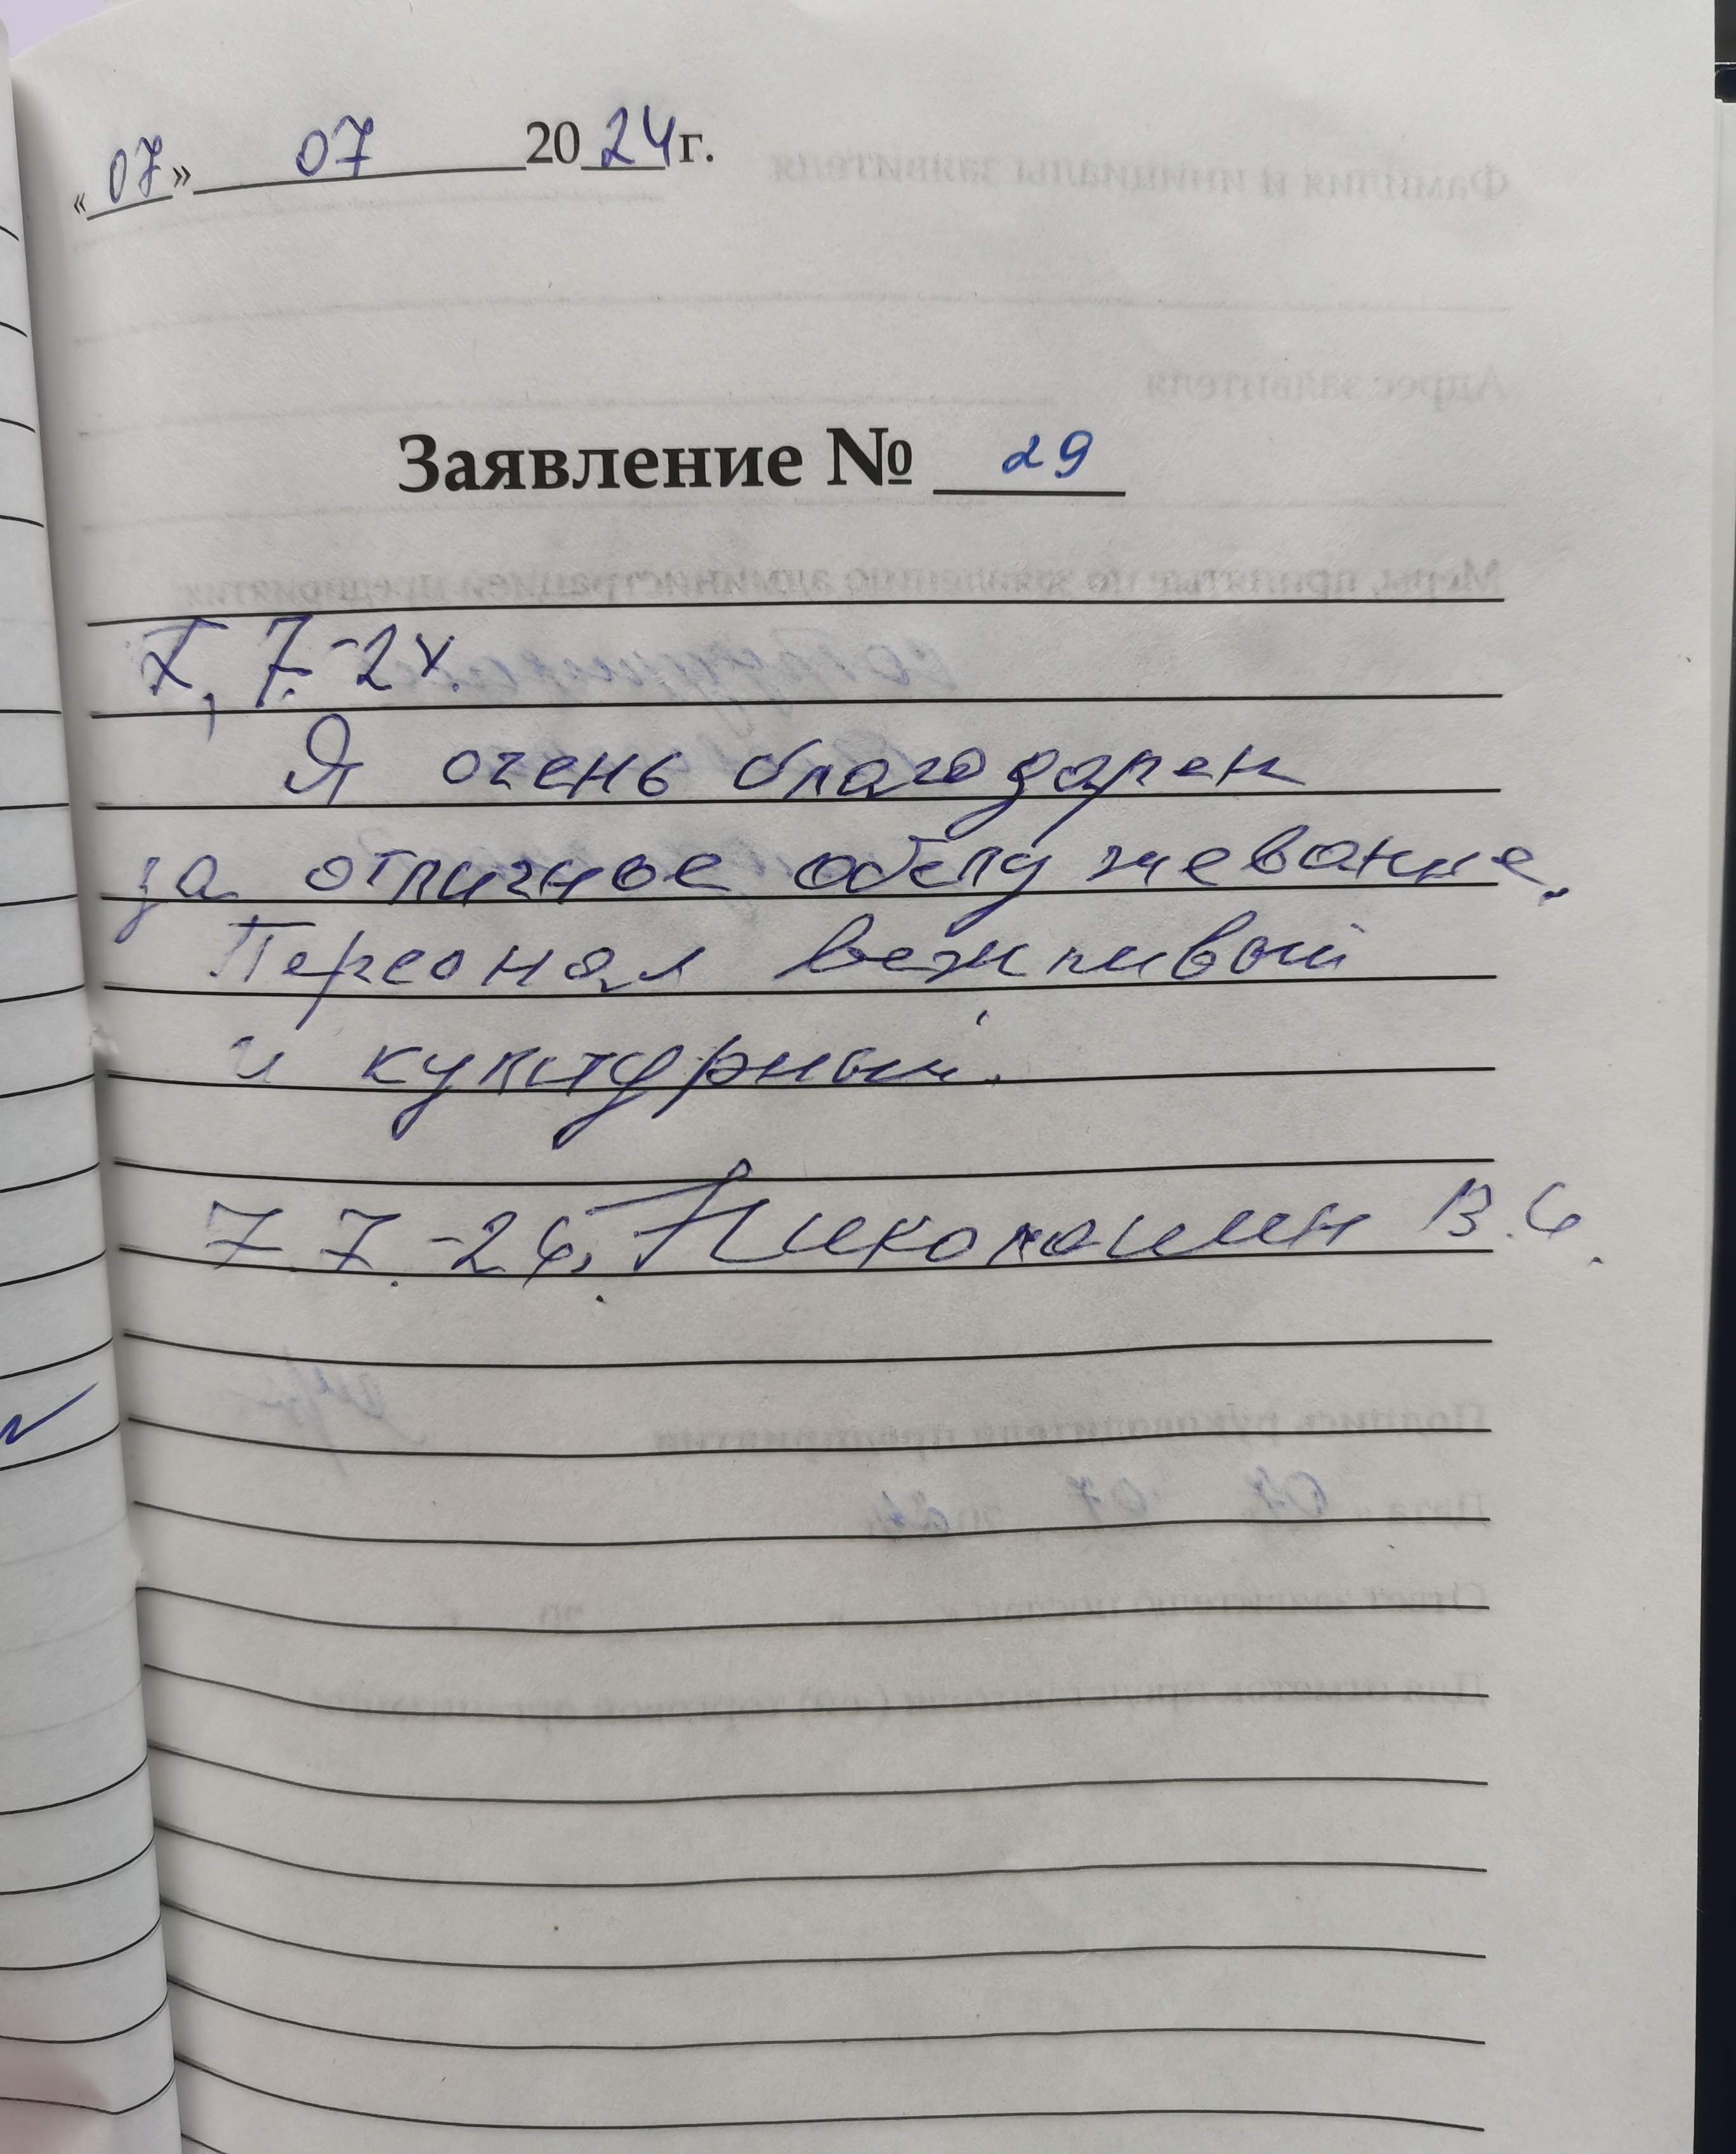 «07» 07 2024 г.
Заявление № 29
7.7.-24.
Я очень благодарен
за отличное обслужевание.
Персонал вежливый
и культурный.
7.7.-24. В.